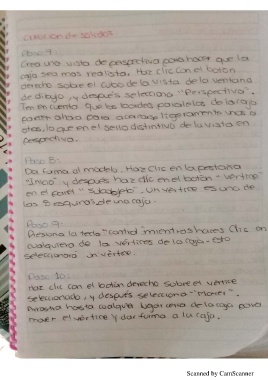 Creación de sólidos
Paso 7.
Crea una vista de perspectiva para hacer que la
caja sea mas realista. Haz clic con el botón
derecho sobre el cubo de la vista de la ventana
de dibujo, y después selecciona "Perspectiva".
Ten en cuenta que los bordes paralelos de la caja
parecen ahora para acercarse ligeramente unos a
otros, lo que en el sello distintivo de la vista en
perspectiva.
Paso 8:
Da forma al modelo. Haz clic en la pestaña
"Inicio" y después haz clic en el botón "Vértice"
en el panel "Subobjeto". Un vértice es una de
las 8 esquinas de una caja
Paso 9:
Presiona la tecla "control" mientras haces clic en
cualquiera de la vértices de la caja. esto
seleccionará un vértice.
Paso 10:
Haz clic con el botón derecho sobre el vértice
seleccionado, y después selecciona "Mover".
Arrastra hasta cualquier lugar cerca de la caja para
mover el vértice y dar forma a la caja.
Scanned by CamScanner